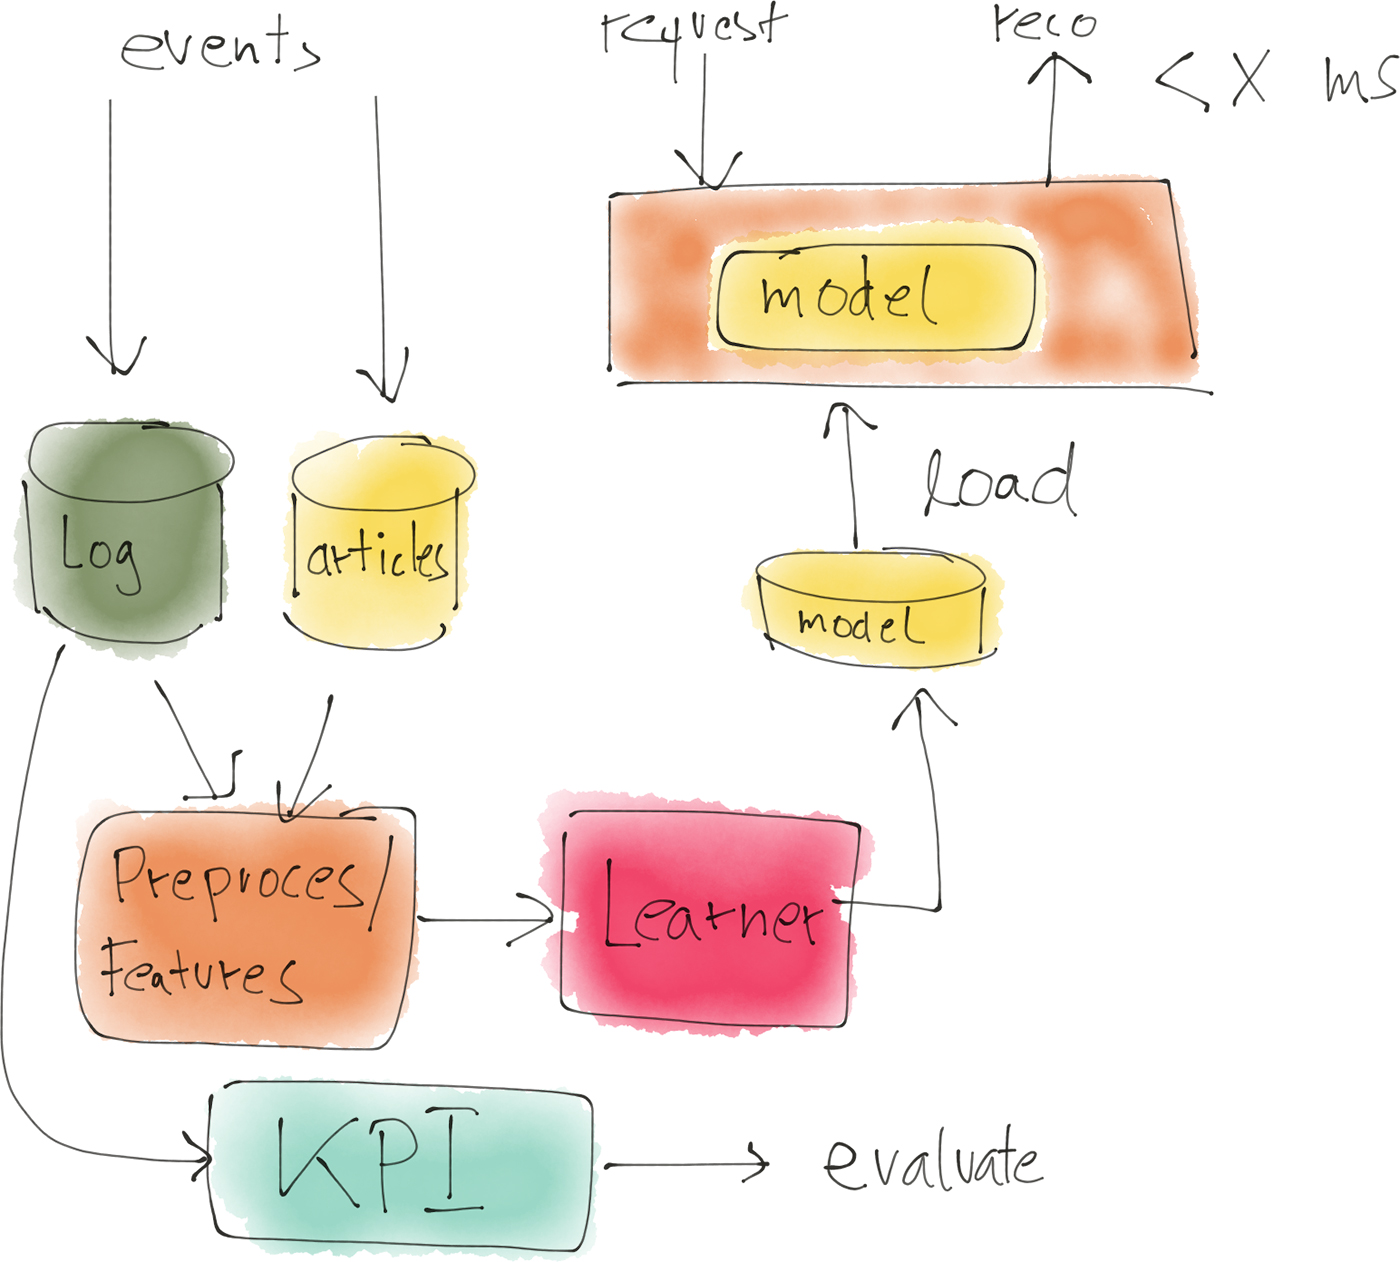 events
request
reco
< X ms
model
Log
articles
load
model
Preproces/
Features
Learner
KPI
evaluate